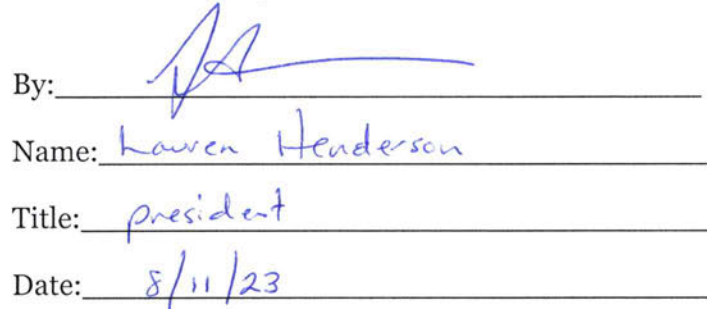 By:
Name: Lauren Henderson
Title: president
Date: 8/11/23